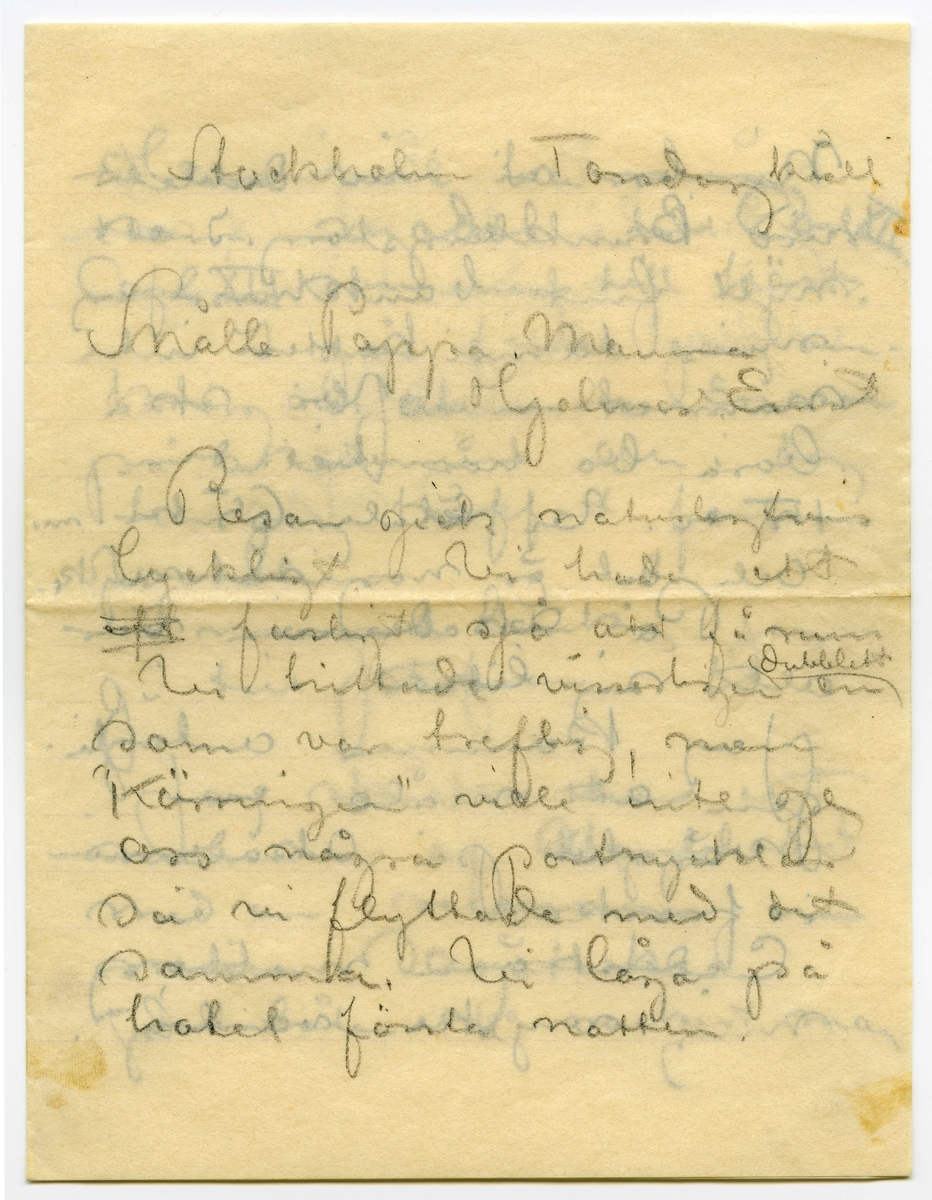 Stockholm Torsdag kväll
Snälle Pappa, Mamma
Hjalmar Ernst
Resan gick naturligtvis
lyckligt. Vi hade ett
fasligt sjå att få rum
dubblett
Vi hittade visserligen en
som var treflig, men
"Käringen" ville inte ge
oss några portnycklar
så vi flyttade med det
samma. Vi lågo på
hotel första natten.